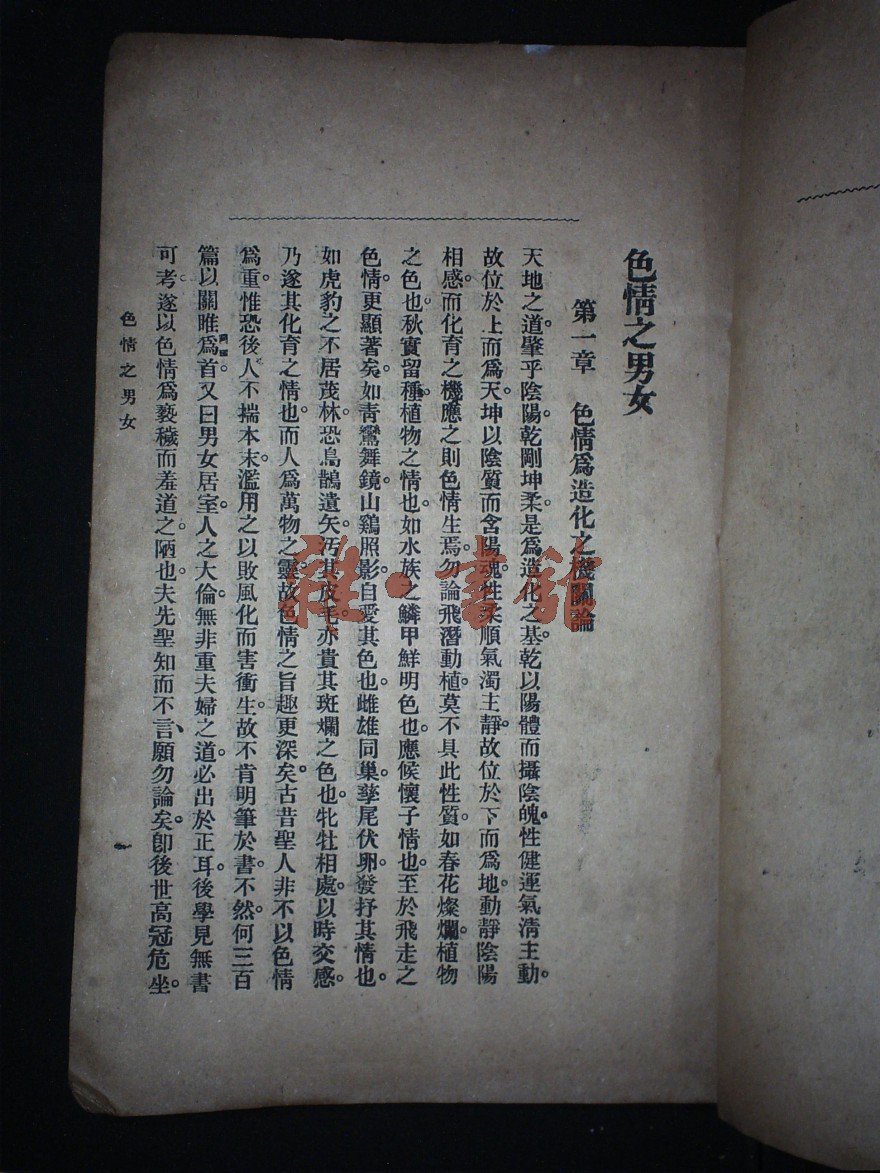 色情之男女
第一章 色情爲造化之機關論
天地之道。肇乎陰陽。乾剛坤柔。是爲造化之基。乾以陽體而攝陰魄。性健運氣淸主動。
故位於上而爲天。坤以陰質而含陽魂。性柔順氣濁主靜。故位於下而爲地。動靜陰陽
相感。而化育之機應之。則色情生焉。勿論飛潛動植。莫不具此性質。如春花燦爛。植物
之色也。秋實留種。植物之情也。如水族之鱗甲鮮明。色也。應候懷子。情也。至於飛走之
色情。更顯著矣。如青鸞舞鏡。山鷄照影。自愛其色也。雌雄同巢。孳尾伏卵。發抒其情也。
如虎豹之不居茂林。恐鳥鵲遺矢。汚其皮毛。亦貴其斑斕之色也。牝牡相處。以時交感。
乃遂其化育之情也。而人爲萬物之靈。故色情之旨趣更深矣。古昔聖人。非不以色情
爲重。惟恐後人不揣本末。濫用之以敗風化而害衞生。故不肯明筆於書。不然。何三百
篇以關雎爲首。又曰男女居室。人之大倫。無非重夫婦之道。必出於正耳。後學見無書
可考。遂以色情爲褻穢而羞道之。陋也。夫先聖知而不言、願勿論矣。卽後世高冠危坐。
色情之男女
一
雜·書館